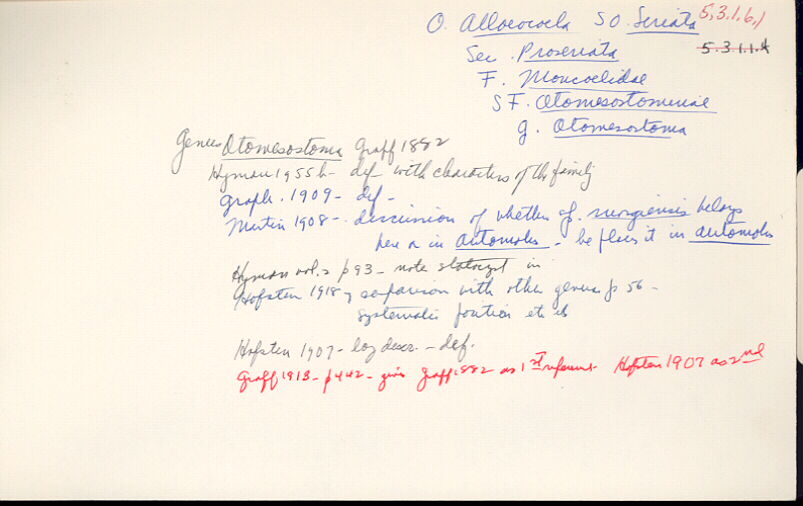 O. Alloeocoela SO. Seriata 5.3.1.6.1
Sec. Proseriata 5.3.1.1.
F. Monocoelidae
SF. Otomesostominae
g. Otomesostoma
Genus Otomesostoma Graff 1882
Hyman 1955b - def with characters of the family
Graff. 1909 - def -
Martin 1908 - discussion of whether of morgiensis belongs
here or in Automolos - he places it in Automolos
Hyman vol. 2 p 93 - note statocyst in
Hofsten 1918 - comparison with other genera p 56 -
systematic position etc
Hofsten 1907 - long descr. - def.
Graff 1913 - p 442 - gives Graff 1882 as 1st reference Hofsten 1907 as 2nd